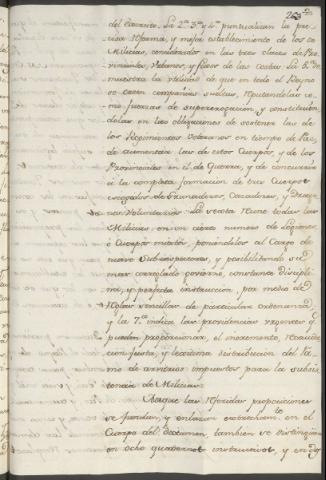 del Exercito. La 2.ª 3.ª y 4.ª puntualizan la pre-
cisa reforma, y mejor establecimiento de las
Milicias, consideradas en las tres clases de Pro-
vinciales, Urbanas, y fixos de las Costas. La 5.ª de-
muestra la utilidad de que en todo el Reyno
se creen compañias sueltas, reputandolas co-
mo fuerzas de supererogacion, y constituien-
dolas en las obligaciones de sostener las de
los Regimientos Veteranos en tiempo de Paz,
de aumentar las de estos Cuerpos, y de los
Provinciales en el de Guerra, y de concurrir
à la completa formacion de tres Cuerpos
arreglados de Granaderos, Cazadores, y Drago-
nes Voluntarios. La sexta reune todas las
Milicias en un cierto numero de Legiones
ò Cuerpos poniendolas al Cargo de
nueve Subinspectores, y posibilitando su
mas arreglado govierno, constante discipli-
na, y perfecta instruccion, por medio de
reglas sencillas de particular ordenanza,
y la 7.ª indica las providencias urgentes q.e
pueden proporcionar el incremento,
y legitima distribucion del Ra-
mo de arvitrios impuestos para la subsis-
tencia de Milicias.
Aunque las referidas proposiciones
se fundan, y enlazan estrecham.te en el
Cuerpo del dictamen, tambien se distinguen
en ocho quadernos instructivos, y en